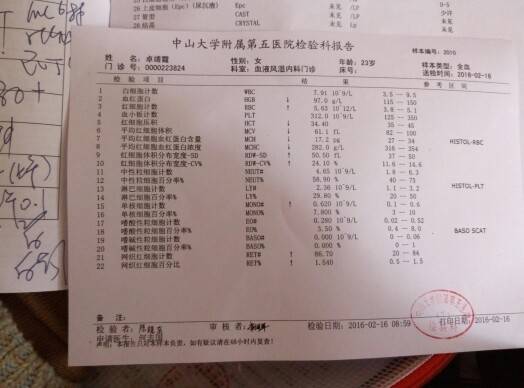 中山大学附属第五医院检验科报告
样本编号: 2010
姓 名: 卓靖霞 性别: 女 年龄: 23岁 样本类型: 全血
门 诊 号: 0000223824 科室: 血液风湿内科门诊 床号: 送检时间: 2016-02-16
检 验 项 目 结 果 参 考 区 间
1 白细胞计数 WBC 7.91 10^9/L 3.5 - 9.5
2 血红蛋白 HGB ↓ 97.0 g/L 115 - 150
3 红细胞计数 RBC ↑ 5.63 10^12/L 3.8 - 5.1
4 血小板计数 PLT 312.0 10^9/L 125 - 350
5 红细胞压积 HCT ↓ 34.40 35 - 45
6 平均红细胞体积 MCV ↓ 61.1 fL 82 - 100
7 平均红细胞血红蛋白含量 MCH ↓ 17.2 pg 27 - 34
8 平均红细胞血红蛋白浓度 MCHC ↓ 282.0 g/L 316 - 354
9 红细胞体积分布宽度-SD RDW-SD ↑ 50.50 fL 37 - 50
10 红细胞体积分布宽度-CV% RDW-CV% ↑ 24.10 % 11.6 - 14.6
11 中性粒细胞计数 NEUT# 4.65 10^9/L 1.8 - 6.3
12 中性粒细胞百分率% NEUT% 58.90 % 40 - 75
13 淋巴细胞计数 LY# 2.36 10^9/L 1.1 - 3.2
14 淋巴细胞百分率% LY% 29.80 % 20 - 50
15 单核细胞计数 MONO# ↑ 0.620 10^9/L 0.1 - 0.6
16 单核细胞百分率% MONO% 7.800 % 3 - 10
17 嗜酸性粒细胞计数 EO# 0.280 10^9/L 0.02 - 0.52
18 嗜酸性粒细胞百分率% EO% 3.50 % 0.4 - 8.0
19 嗜碱性粒细胞计数 BASO# 0.000 10^9/L 0 - 0.06
20 嗜碱性粒细胞百分率% BASO% 0.000 % 0 - 1
21 网织红细胞计数 RET# ↑ 86.70 20 - 84
22 网织红细胞百分比 RET% ↑ 1.540 0.5 - 1.5
HISTOL-RBC
HISTOL-PLT
BASO SCAT
备 注:
检 验 者: 审 核 者: 检验日期: 2016-02-16 08:59 打印日期: 2016-02-16
申请医生:
声明: 本报告只对本样本负责, 如有疑议请在48小时内复查!